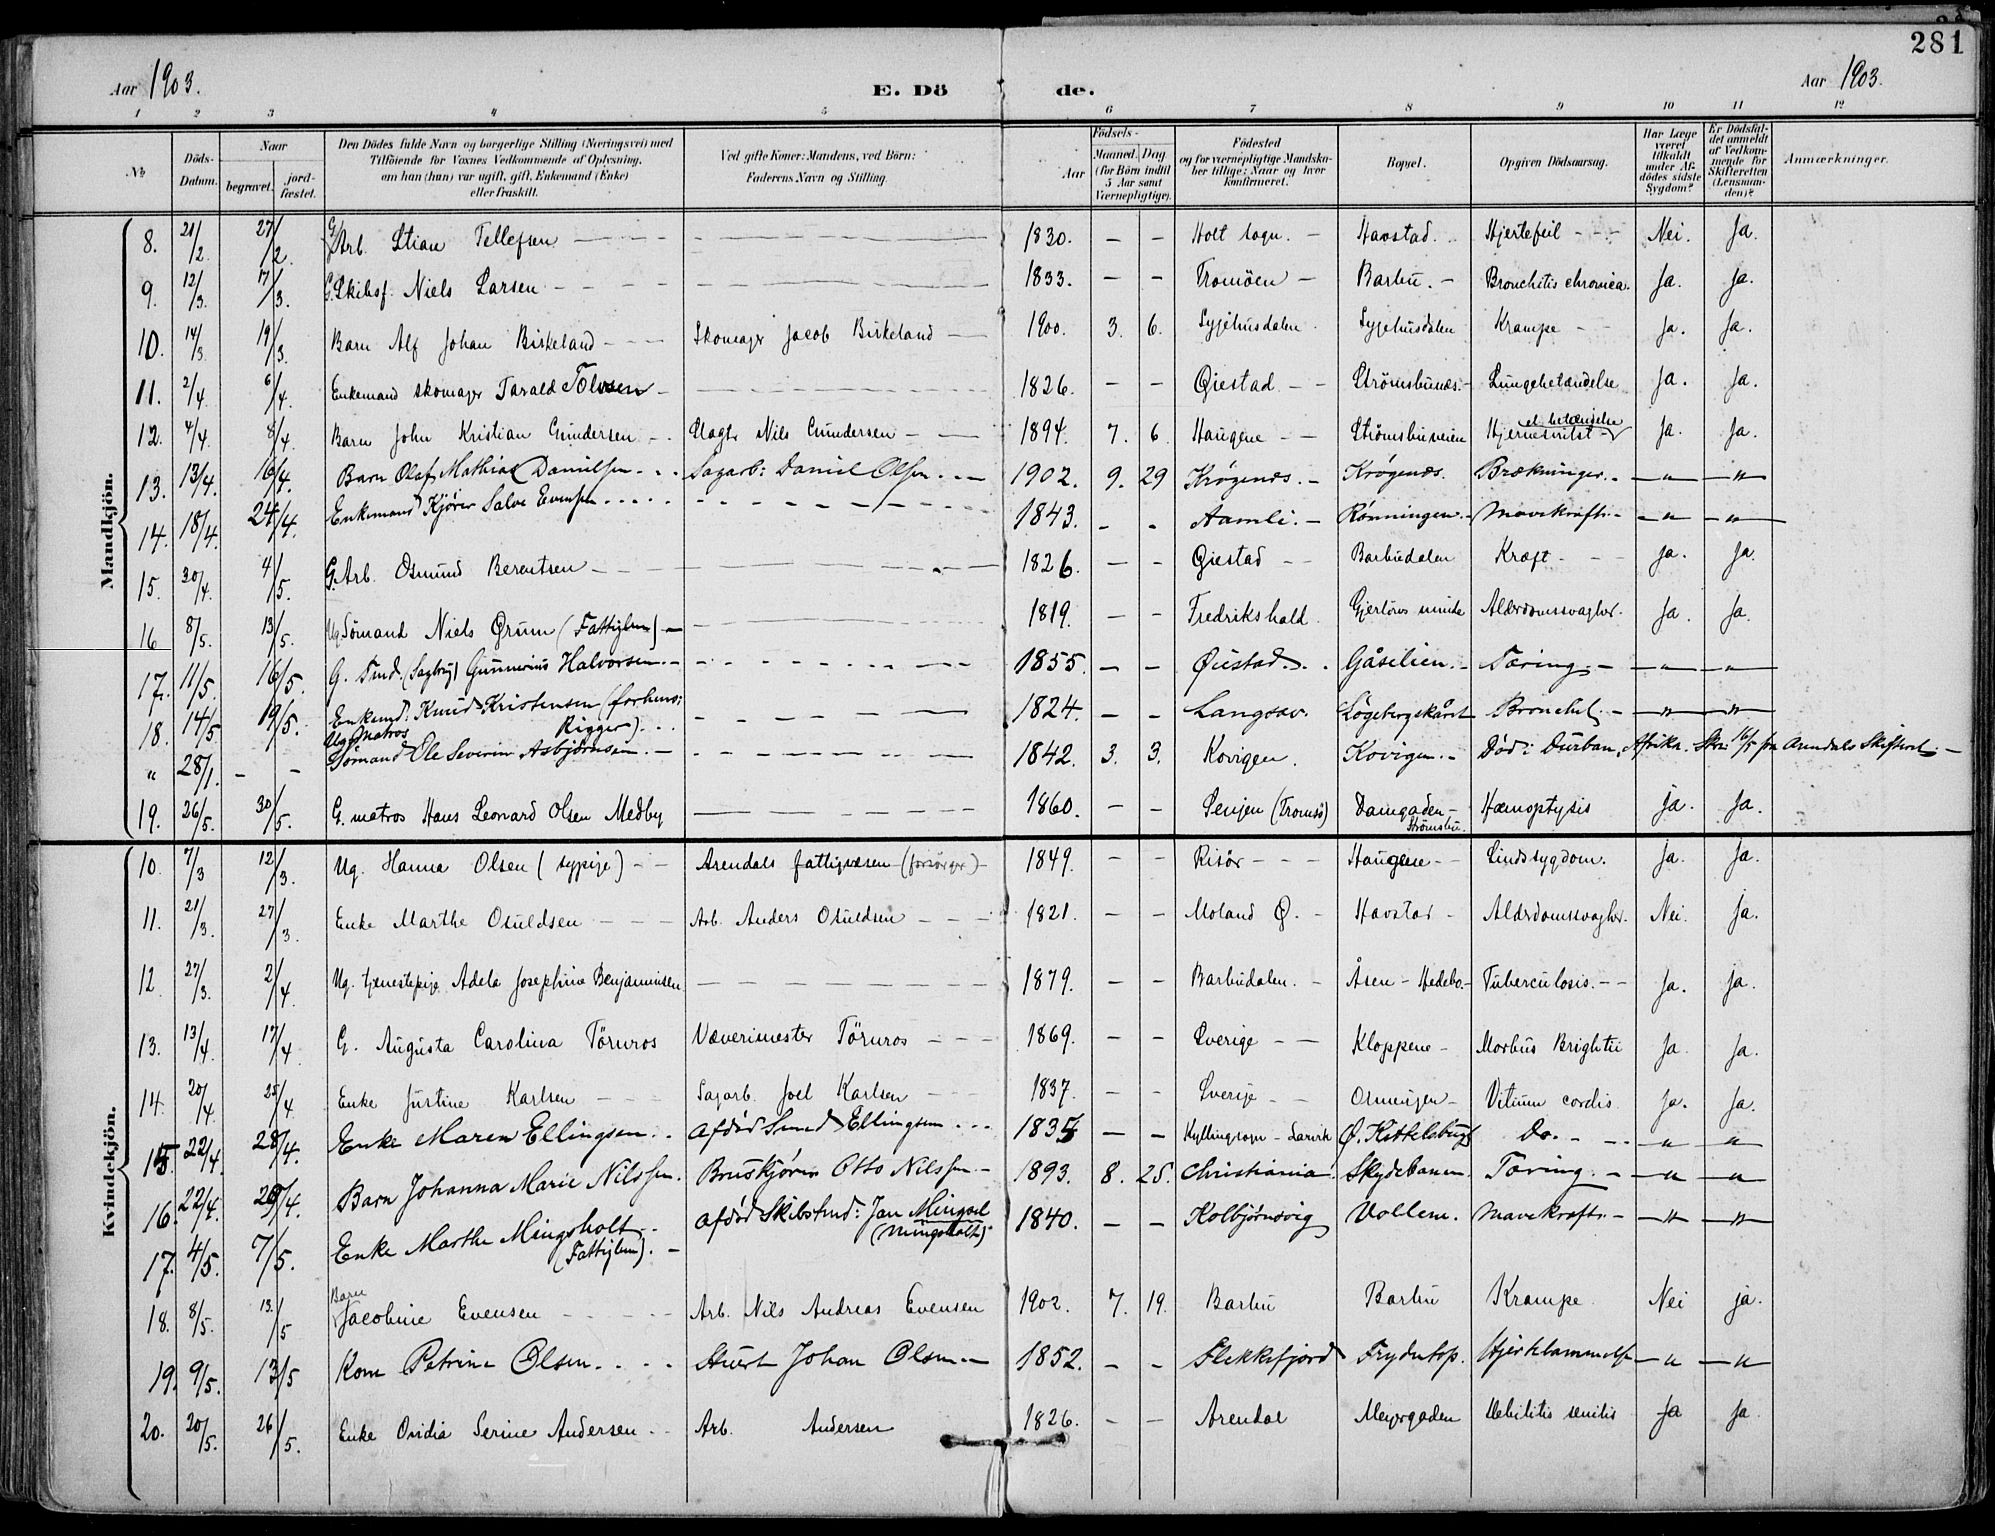 281
Aar 1903.
E. Dö de.
Aar 1903.
1 2 3 4 5 6 7 8 9 10 11 12
No
Döds-Datum.
Naar
begravet.
jord-fæstet.
Den Dödes fulde Navn og borgerlige Stilling (Næringsvei) med
Tilföiende for Voxnes Vedkommende af Oplysning,
om han (hun) var ugift, gift, Enkemand (Enke)
eller fraskilt.
Ved gifte Koner: Mandens, ved Börn:
Faderens Navn og Stilling.
Födsels-
Aar
Maaned. Dag
(for Börn indtil
5 Aar samt
Værnepligtige).
Födested
og for værnepligtige Mandska-
ber tillige: Naar og hvor
konfirmeret.
Bopæl.
Opgiven Dödsaarsag.
Har Læge
været
tilkaldt
under Af-
dödes sidste
Sygdom?
Er Dödsfal-
det anmeldt
af Vedkom-
mende for
Skifteretten
(Lensman-
den)?
Anmærkninger.
Mandkjön.
8. 21/2 27/2. G. Arb. Stian Tellefsen — 1830. – – Holt sogn. – Havstad. Hjertefeil – Nei. Ja.
9. 12/3. 17/3. G. Skibsf. Niels Larsen — 1833. – – Tromöen – Barbu. – Bronchitis chronica. Ja. Ja.
10. 14/3. 19/3. Barn Alf Johan Birkeland – Skomager Jacob Birkeland — 1900. 3. 6. Sygehusdalen. Sygehusdalen Krampe – Ja. Ja.
11. 2/4. 6/4. Enkemand skomager Tarald Tolvsen – 1826. – – Öiestad – Strömsbunæs. – Lungebetændelse Ja. Ja.
12. 4/4. 8/4. Barn John Kristian Gundersen – Slagtr Nils Gundersen — 1894. 7. 6. Haugene – Strömsbuveien Hjerne el. betændelse Ja. Ja.
13. 13/4. 16/4. Barn Olaf Mathias Danielsen. Sagarb: Daniel Olsen. 1902. 9. 29 Krögenæs. – Krögenæs. Brækninger. – " – – " –
14. 18/4. 24/4. Enkemand Kjörer Salve Evensen 1843. – – Aamli. – Rönningen. – Mavekræft. – " – – " –
15. 30/4. 4/5. G. Arb. Osmund Berentsen — 1826. – – Öiestad – Barbudalen Kræft – Ja. Ja.
16 8/5. 13/5. Ug. Sömand Niels Örum (Fattiglem) – 1819. – – Fredrikshald. Gjerlövs minde Alderdomssvaghed. Ja. Ja.
17. 11/5. 16/5. G. Tmd. (Sagbrug) Gunnerius Halvorsen. – 1855. – – Öiestad. Gåsilien. – Tæring. – " – – " –
18. 14/5 19/5. Enkemd: Knud Kristensen (forhens:
Rigger). 1824. – – Langsæ. Lögebergskåret Bronchet. – " – – " –
" 28/1. – – Ug. Matros
Sömand Ole Severin Asbjörnsen. – 1842. 3. 3. Kovigen. Kovigen. – Död i Durban, Afrika. Skr. 16/5 fra Arendals Skifteret. –
19. 26/5. 30/5. G. matros Hans Leonard Olsen Medby — 1860. – – Senjen (Tromsö) Damgaden – Strömsbu. Hæmoptysis Ja. Ja.
Kvindekjön.
10. 7/3 12/3. Ug. Hanna Olsen (sypige) – Arendals fattigvæsen (forsörger) – 1849. – – Risör – Haugene – Sindssygdom. Ja. Ja.
11. 21/3. 27/3. Enke Marthe Osuldsen – Arb. Anders Osuldsen – 1821. – – Moland Ö. – Havstad – Alderdomssvaghed. Nei. Ja.
12. 27/3. 2/4. Ug. tjenestepige Adela Josephine Benjaminsen — 1879. – – Barbudalen. – Åsen – Hedebo. – Tuberculosis. – Ja. Ja.
13. 13/4. 17/4. G. Augusta Carolina Törnros Væverimester Törnros – 1869. – – Sverige – Kloppene – Morbus Brightii Ja. Ja.
14. 20/4. 25/4. Enke Justine Karlsen – Sagarb. Joel Karlsen 1837. – – Sverige – Osmeigen – Vitium cordis. Ja. Ja.
15. 22/4. 28/4. Enke Maren Ellingsen. Afdöd Smed Ellingsen. 1835 – – – Larvik Ö. Kittelsbugt Do. – " "
16. 22/4. 29/4. Barn Johanna Marie Nilssen. Bruskjörer Otto Nilssen. – 1893. 8. 25. Christiania. Skydebanen. Tæring. – " – – " –
17. 4/5. 7/5. Enke Marthe Mingsholt.
(Fattiglem). – Afdöd Skibstmd: Jan Mingael
(Mingsholt). 1840. – – Kolbjörnsvig Vollene. Mavekræft. – " – – " –
18. 8/5. 13./5 Barn
Jacobine Evensen – Arb. Nils Andreas Evensen 1902. 7. 19. Barbu Barbu Krampe. Nei ja.
19. 9/5. 13/5 Kone Petrine Olsen. Stuert Johan Olsen. – 1852. – – Flekkefjord Frydentop. Hjertelammelse – " – – " –
20. 20/5. 26/5. Enke Ovidia Serine Andersen. Arb. Andersen 1826. – – Arendal Meyergaden Debilitis senilis Ja Ja.